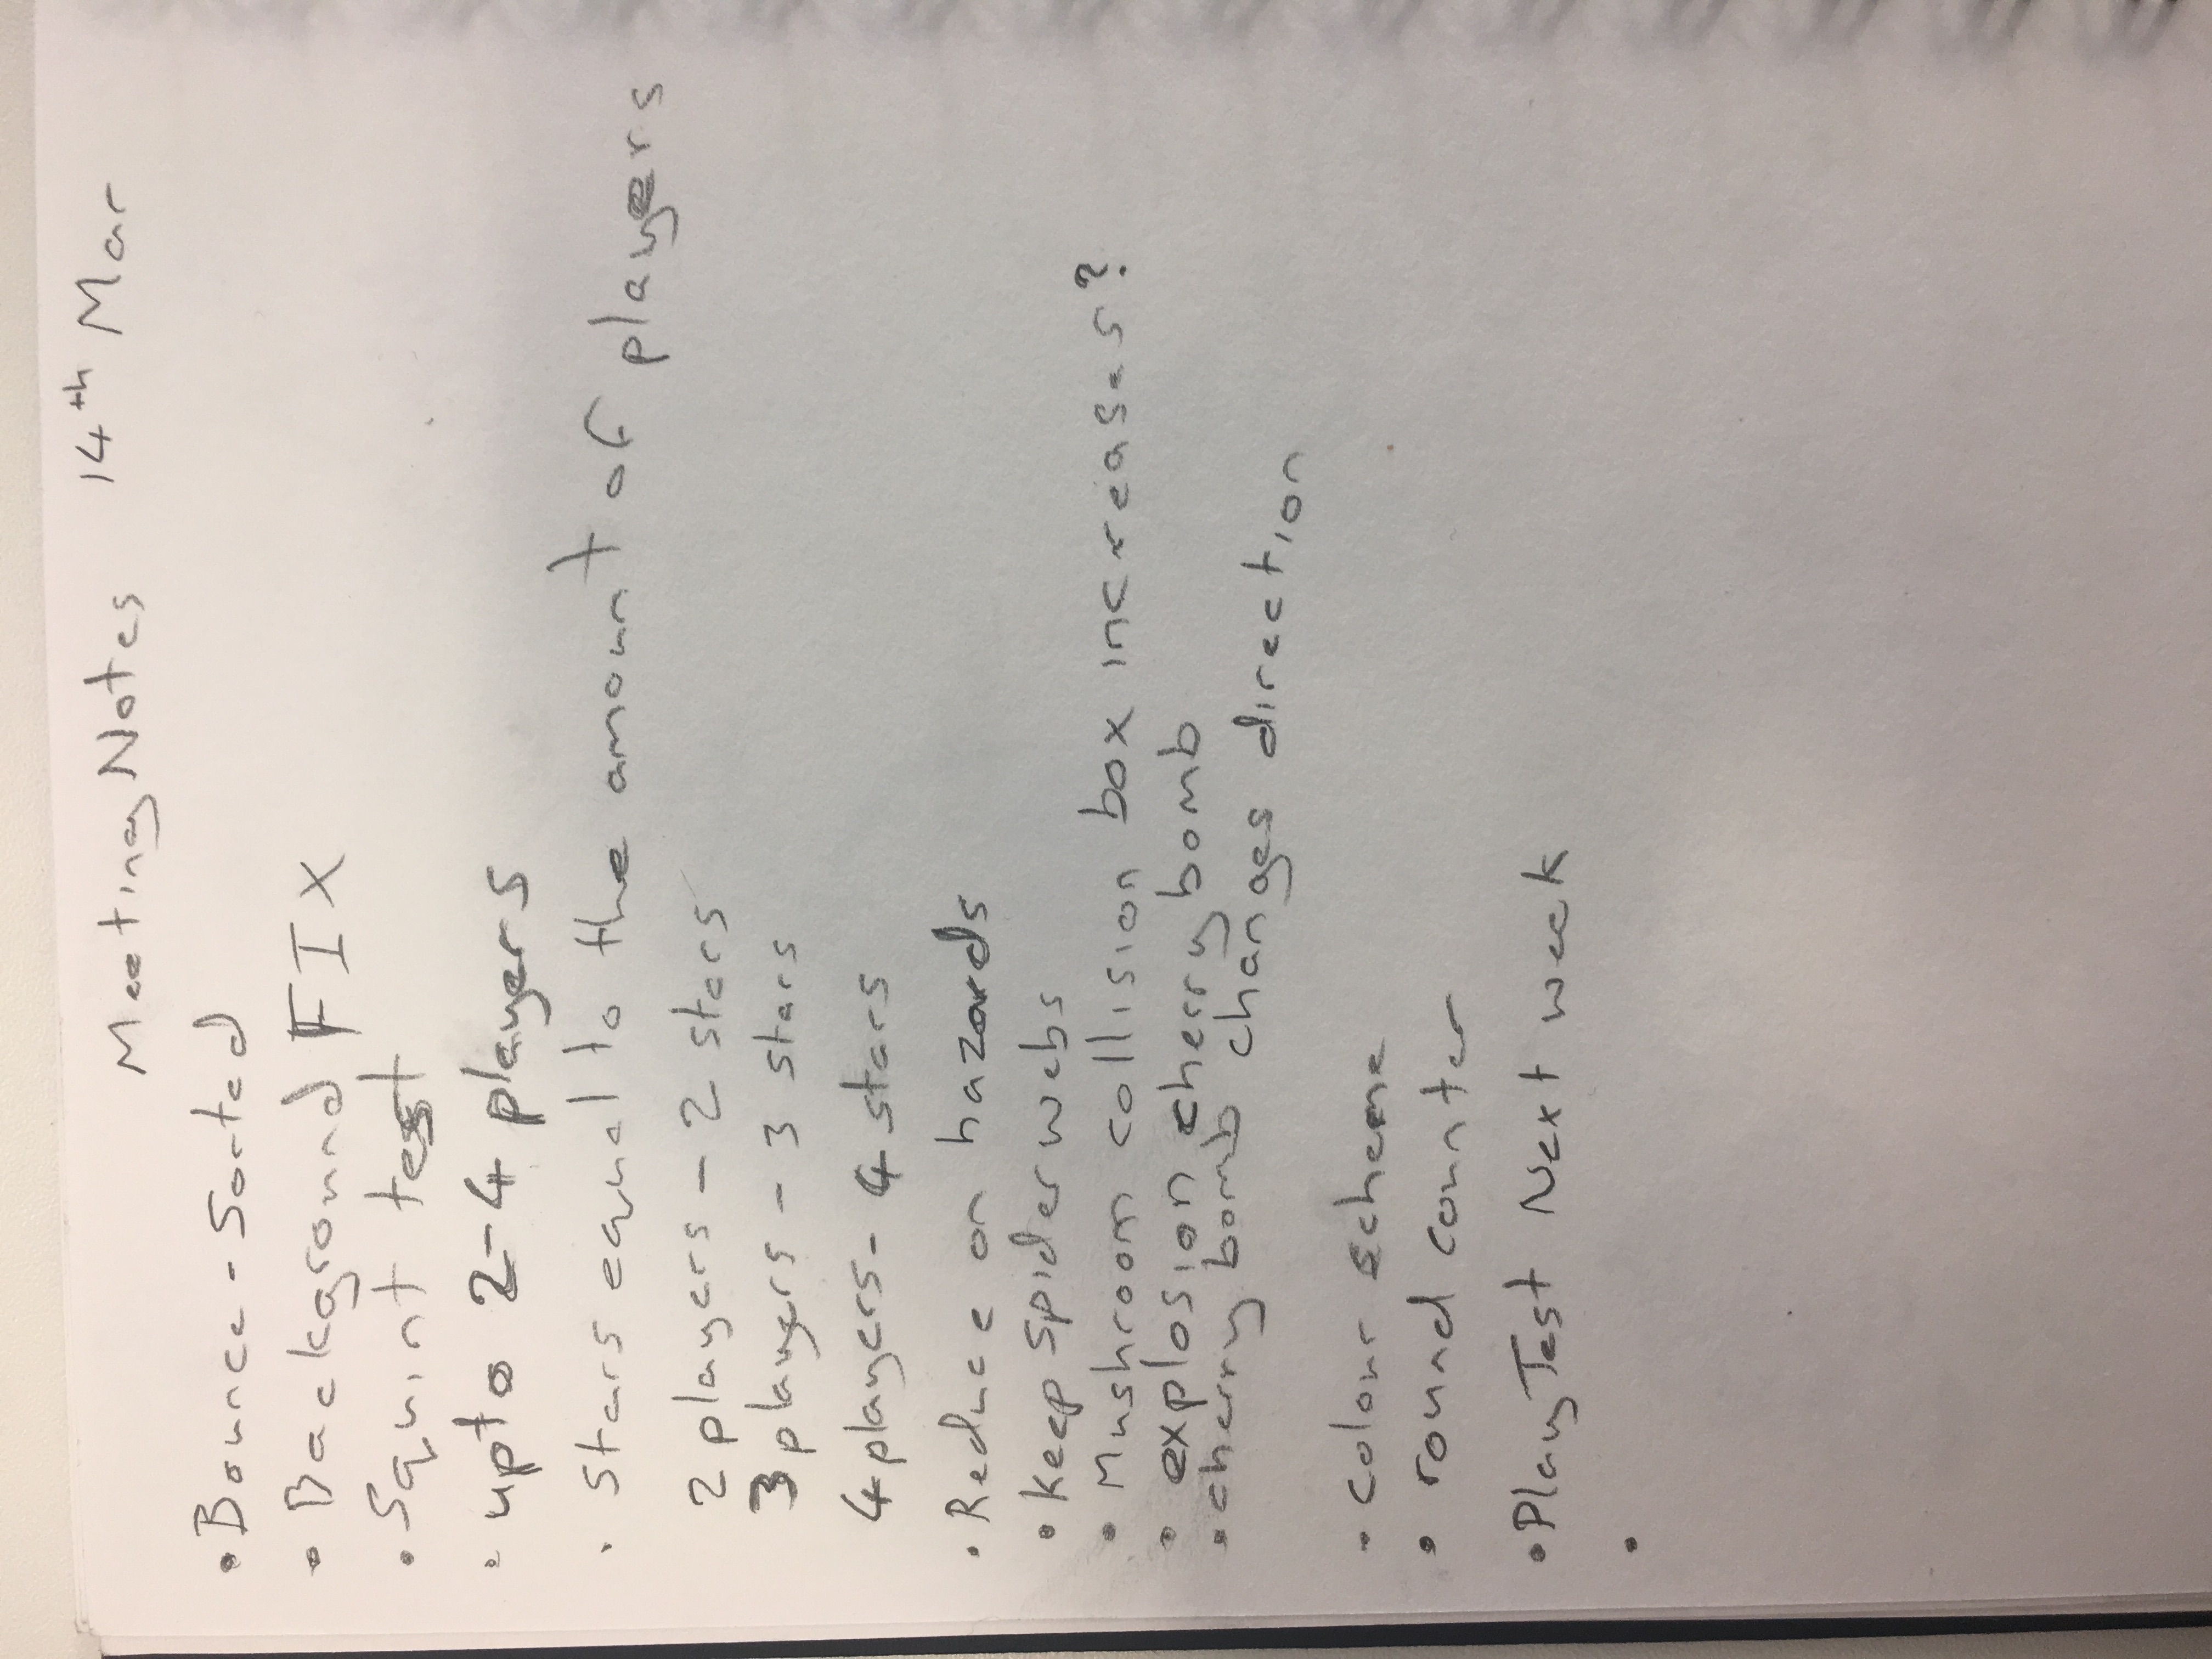 Meeting Notes 14th Mar
• Bounce - Sorted
• Background FIX
• Squint test
• upto 2-4 players
• Stars equal to the amount of players
2 players - 2 stars
3 players - 3 stars
4 players - 4 stars
• Reduce on hazards
• Keep spider webs
• Mushroom collision box increases?
• explosion cherry bomb
• cherry bomb changes direction
• colour scheme
• round counter
• Play Test Next week
•